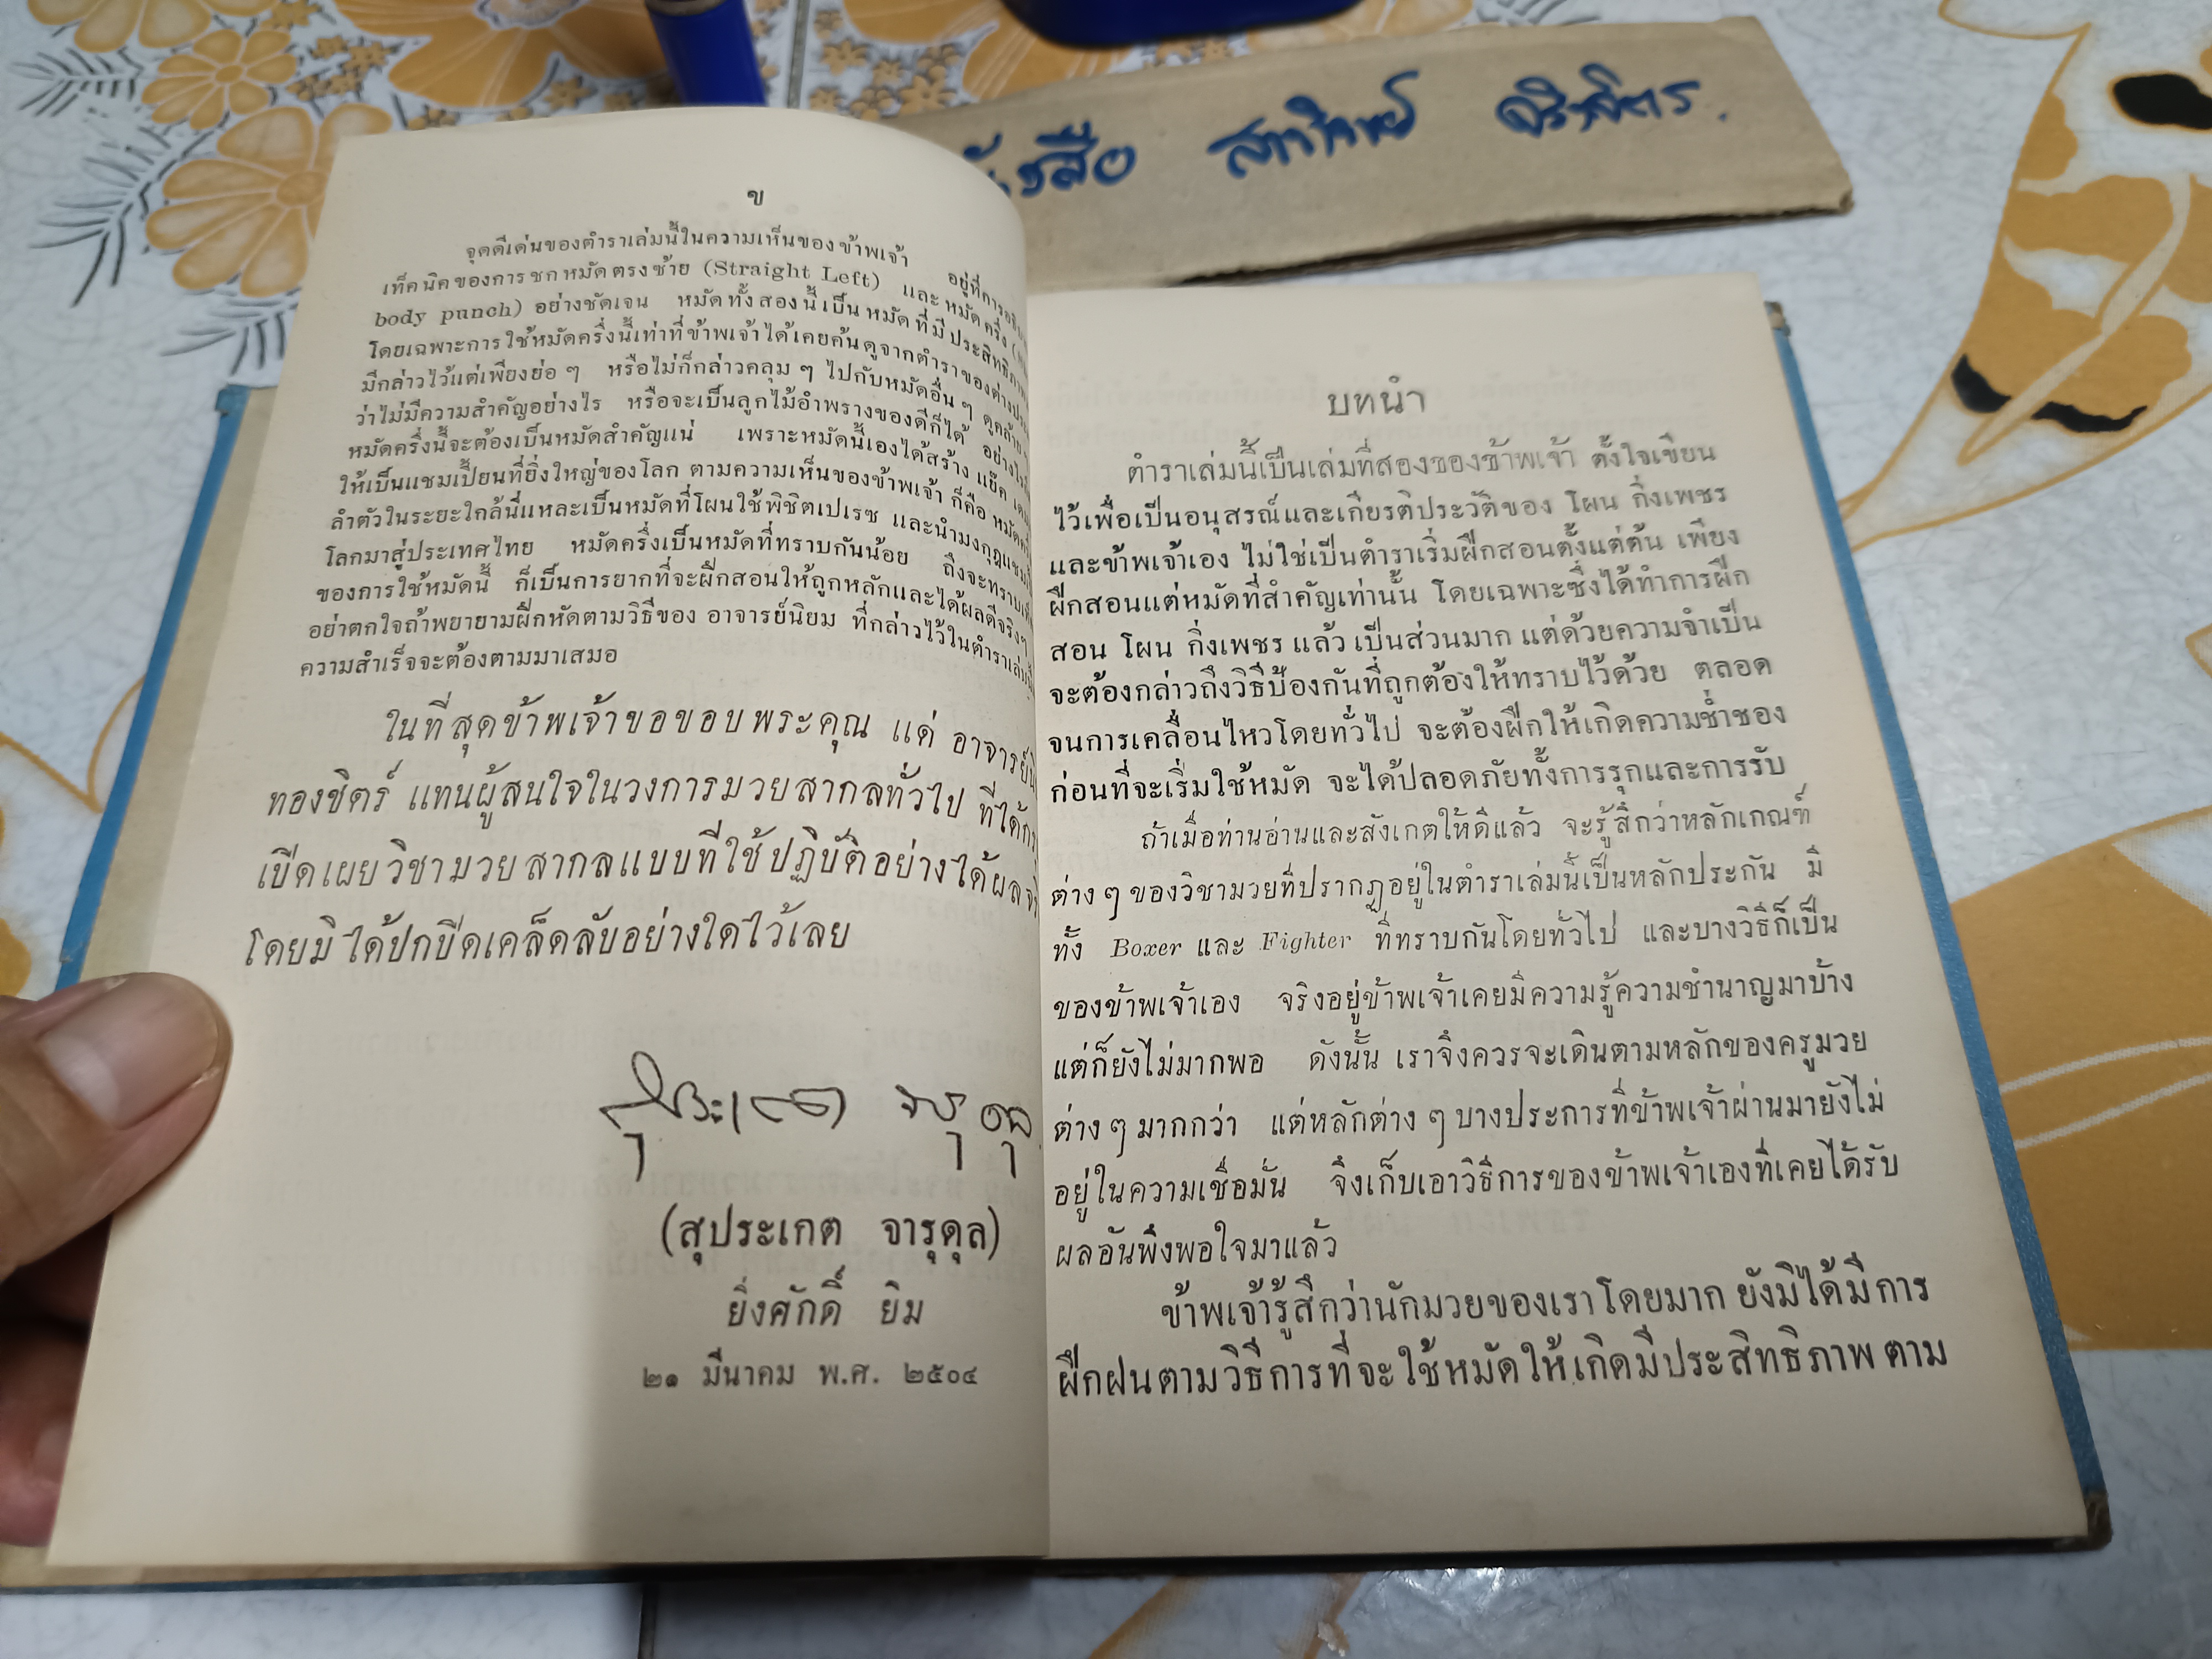 สือ
ข
จุดดีเด่นของตำราเล่มนี้ในความเห็นของข้าพเจ้า อยู่ที่การ
เท็คนิคของการชกหมัดตรงซ้าย (Straight Left) และหมัดครึ่ง
body punch) อย่างชัดเจน หมัดทั้งสองนี้เป็นหมัดที่มีประสิทธิภาพ
โดยเฉพาะการใช้หมัดครึ่งนี้เท่าที่ข้าพเจ้าได้เคยค้นดูจากตำราของต่าง
มีกล่าวไว้แต่เพียงย่อ ๆ หรือไม่ก็กล่าวคลุม ๆ ไปกับหมัดอื่น ๆ ดูคล้าย
ว่าไม่มีความสำคัญอย่างไร หรือจะเป็นลูกไม้อำพรางของดีก็ได้ อย่างไร
หมัดครึ่งนี้จะต้องเป็นหมัดสำคัญแน่ เพราะหมัดนี้เองได้สร้าง แย๊ค
ให้เป็นแชมเปี้ยนที่ยิ่งใหญ่ของโลก ตามความเห็นของข้าพเจ้า ก็คือ หมัด
ลำตัวในระยะใกล้นี่แหละเป็นหมัดที่โผนใช้พิชิตเปเรซ และนำมงกุฎแชมป์
โลกมาสู่ประเทศไทย หมัดครึ่งเป็นหมัดที่ทราบกันน้อย ถึงจะทราบ
ของการใช้หมัดนี้ ก็เป็นการยากที่จะฝึกสอนให้ถูกหลักและได้ผลดีจริงๆ
อย่าตกใจถ้าพยายามฝึกหัดตามวิธีของ อาจารย์นิยม ที่กล่าวไว้ในตำราเล่มนี้
ความสำเร็จจะต้องตามมาเสมอ
ในที่สุดข้าพเจ้าขอขอบพระคุณ แด่ อาจารย์
ทองชิตร์ แทนผู้สนใจในวงการมวยสากลทั่วไป ที่ได้
เปิดเผยวิชามวยสากลแบบที่ใช้ปฏิบัติอย่างได้ผล
โดยมิได้ปกปิดเคล็ดลับอย่างใดไว้เลย
(สุประเกต จารุดุล)
ยิ่งศักดิ์ ยิม
๒๑ มีนาคม พ.ศ. ๒๕๐๔
บทนำ
ตำราเล่มนี้เป็นเล่มที่สองของข้าพเจ้า ตั้งใจเขียน
ไว้เพื่อเป็นอนุสรณ์และเกียรติประวัติของ โผน กิ่งเพชร
และข้าพเจ้าเอง ไม่ใช่เป็นตำราเริ่มฝึกสอนตั้งแต่ต้น เพียง
ฝึกสอนแต่หมัดที่สำคัญเท่านั้น โดยเฉพาะซึ่งได้ทำการฝึก
สอน โผน กิ่งเพชร แล้ว เป็นส่วนมาก แต่ด้วยความจำเป็น
จะต้องกล่าวถึงวิธีป้องกันที่ถูกต้องให้ทราบไว้ด้วย ตลอด
จนการเคลื่อนไหวโดยทั่วไป จะต้องฝึกให้เกิดความช่ำชอง
ก่อนที่จะเริ่มใช้หมัด จะได้ปลอดภัยทั้งการรุกและการรับ
ถ้าเมื่อท่านอ่านและสังเกตให้ดีแล้ว จะรู้สึกว่าหลักเกณฑ์
ต่าง ๆ ของวิชามวยที่ปรากฏอยู่ในตำราเล่มนี้เป็นหลักประกัน มี
ทั้ง Boxer และ Fighter ที่ทราบกันโดยทั่วไป และบางวิธีก็เป็น
ของข้าพเจ้าเอง จริงอยู่ข้าพเจ้าเคยมีความรู้ความชำนาญมาบ้าง
แต่ก็ยังไม่มากพอ ดังนั้น เราจึงควรจะเดินตามหลักของครูมวย
ต่าง ๆ มากกว่า แต่หลักต่าง ๆ บางประการที่ข้าพเจ้าผ่านมายังไม่
อยู่ในความเชื่อมั่น จึงเก็บเอาวิธีการของข้าพเจ้าเองที่เคยได้รับ
ผลอันพึงพอใจมาแล้ว
ข้าพเจ้ารู้สึกว่านักมวยของเราโดยมาก ยังมิได้มีการ
ฝึกฝนตามวิธีการที่จะใช้หมัดให้เกิดมีประสิทธิภาพ ตาม